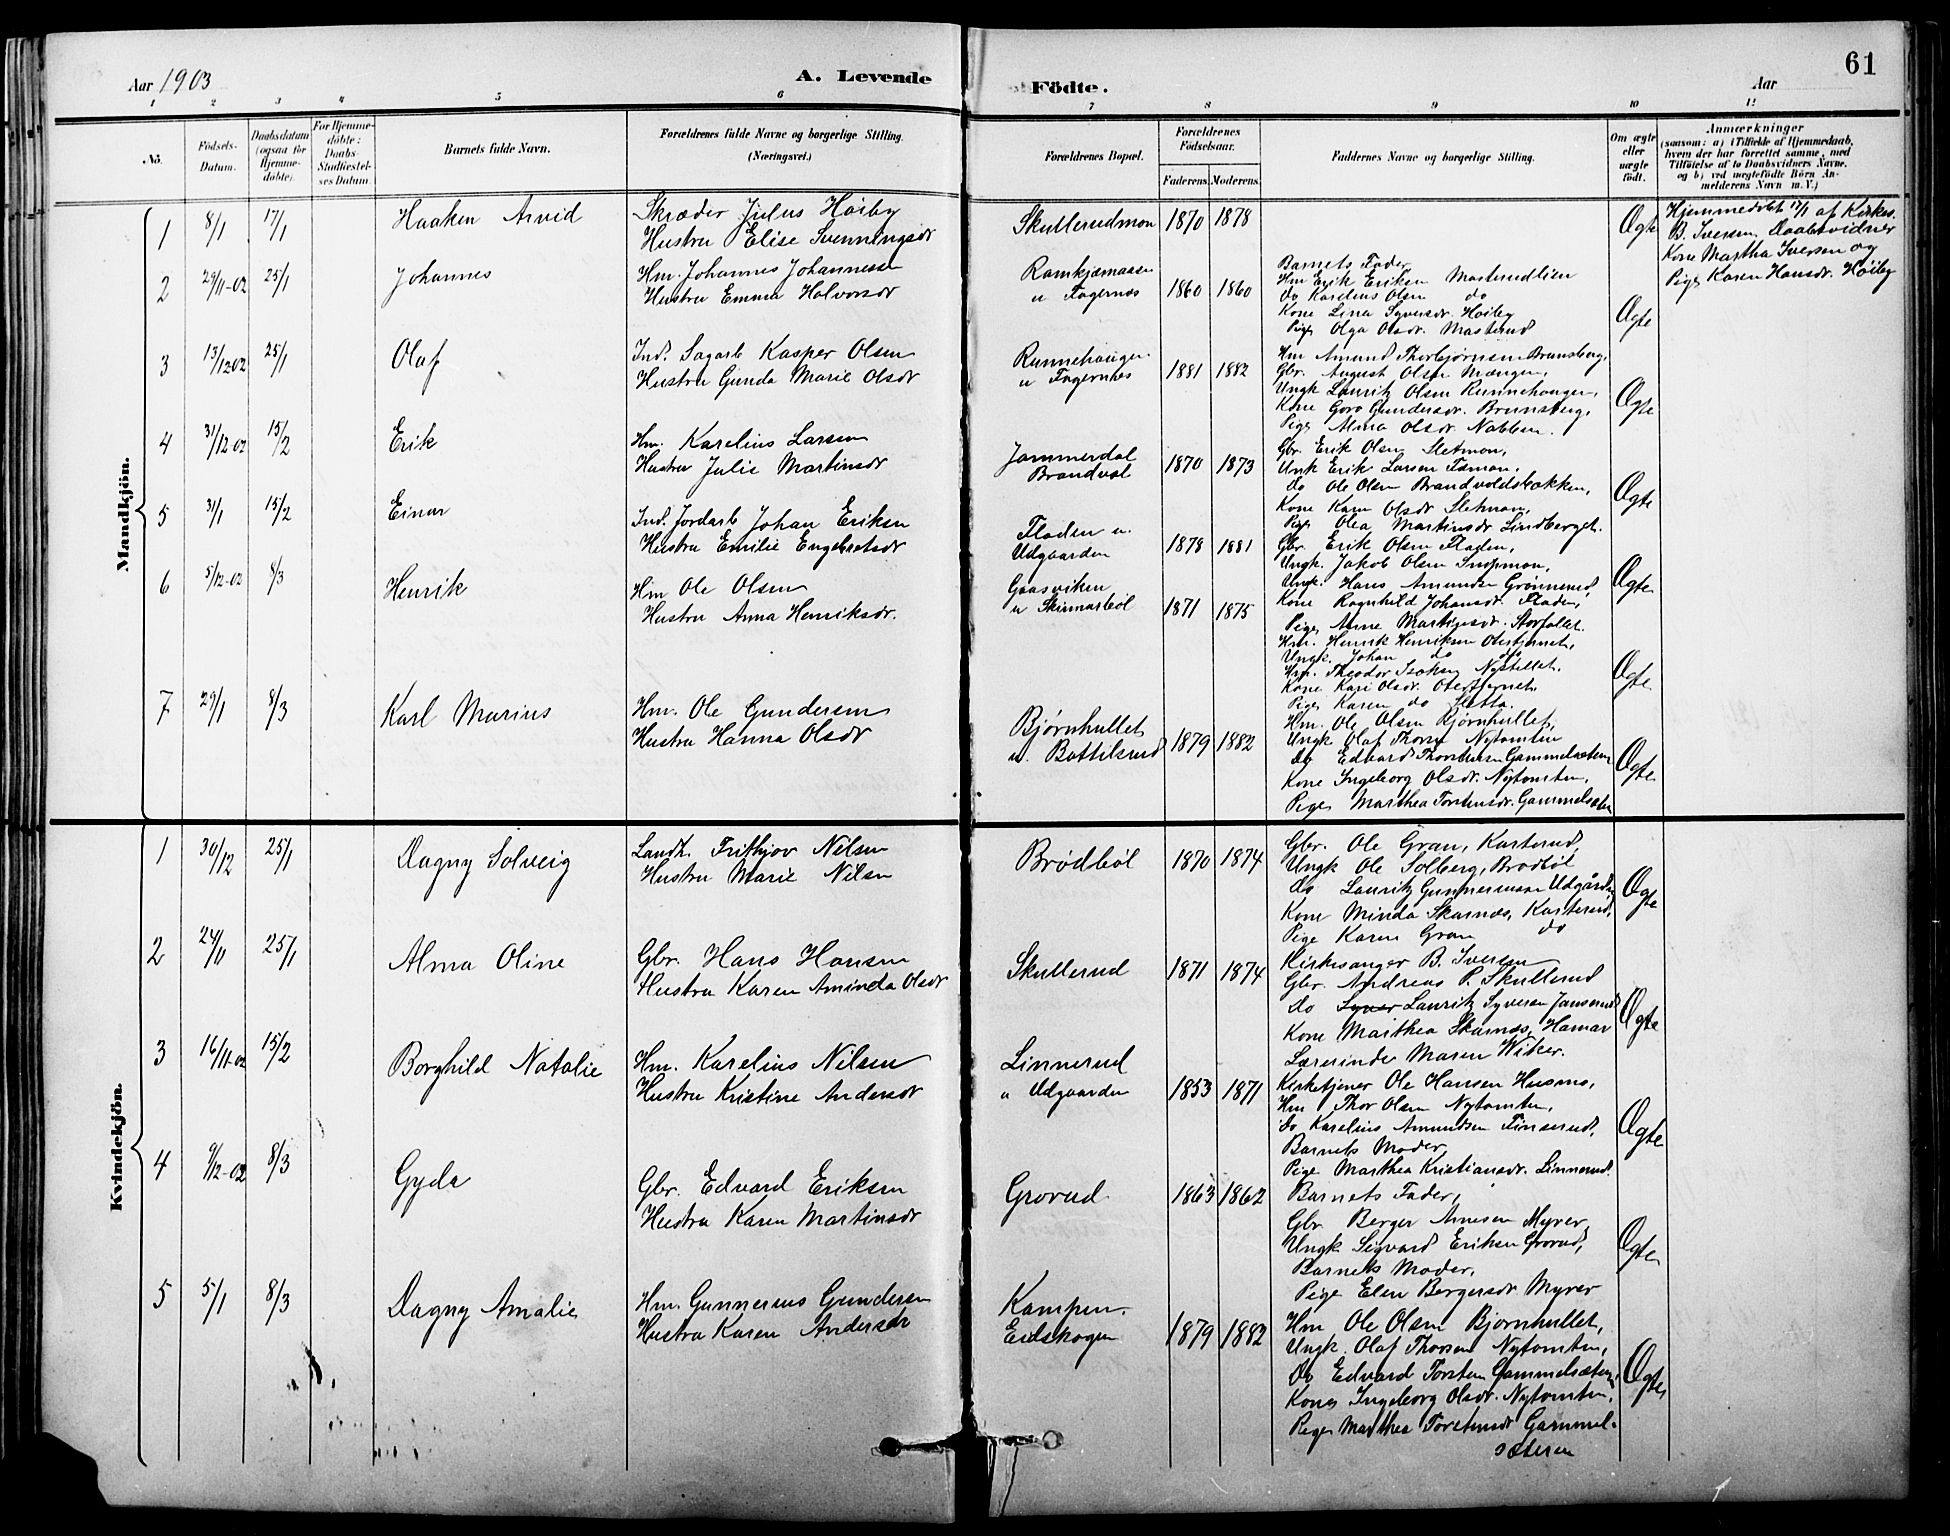 Aar 1903
A. Levende
1 2 3 4 5 6
No.
Födsels-Datum.
Daabsdatum (ogsaa for Hjemme-döbte).
For Hjemme-döbte: Daabs-Stadfæstel-ses Datum
Barnets fulde Navn.
Forældrenes fulde Navne og borgerlige Stilling. (Næringsvei.)
Mandkjön.
1 8/1 17/1 Haaken Arvid Skræder Julus Höiby
Hustru Elise Svenningsdr
2 29/11-02 25/1 Johannes Hm. Johannes Johannessen
Hustru Emma Halvorsdr
3 13/12 02 25/1 Olaf Ind. Sagarb Kasper Olsen
Hustru Gunda Marie Olsdr
4 31/12 02 15/2 Erik Hm. Karelius Larsen
Hustru Julie Martinsdr
5 31/1 15/2 Einar Ind. Jordarb Johan Eriksen
Hustru Emilie Engebretsdr
6 5/12-02 8/3 Henrik Hm Ole Olsen
Hustru Anna Henriksdr.
7 29/1 8/3 Karl Marius Hm. Ole Gundersen
Hustru Hanna Olsdr
Kvindekjön.
1 30/12 25/1 Dagny Solveig Landh. Frithjov Nilsen
Hustru Marie Nilsen
2 24/11 25/1 Alma Oline Gbr. Hans Hansen
Hustru Karen Aminda Olsdr
3 16/11-02 15/2 Borghild Natalie Hm. Karelius Nilsen
Hustru Kristine Andersdr
4 9/12-02 8/3 Gyda Gbr. Edvard Eriksen
Hustru Karen Martinsdr
5 5/1 8/3 Dagny Amalie Hm. Gunnerius Gundersen
Hustru Karen Andersdr
61
Födte.
Aar
7 8 9 10 11
Forældrenes Bopæl.
Forældrenes Födselsaar.
Faderens. Moderens.
Faddernes Navne og borgerlige Stilling.
Om ægte eller uægte födt.
Anmærkninger
(saasom: a) i Tilfælde af Hjemmedaab,
hvem der har forrettet samme, med
Tilföielse af to Daabsvidners Navne.
og b) ved uægtefödte Börn An-
melderens Navn m. V.)
Skullerudmon 1870 1878 Ægte
Hjemmedöbt 17/1 af Kirkes.
B. Iversen Daabsvidner
Kone Martha Iversen og
Pige Karen Hansdr. Höiby
u Fagernes 1860 1860 Ægte
Barnets Fader
Hm Erik Eriksen Masterudlien
do Karelius Olsen do
Kone Lina Syversdr. Höiby
Pige Olga Olsdr. Masterud
Runnehaugen
u Fagernes 1881 1882 Ægte
Hm Amund Thorbjørnsen Brunsberg,
Gbr. August Olsen Mængen,
Ungk Lauritz Olsen Runnehaugen,
Kone Goro Gundersdr. Brunsberg,
Pige Alma Olsdr. Nabben.
Jammerdal
Brandval 1870 1873 Ægte
Gbr. Erik Olsen Sletmon,
Ungk Erik Larsen
do Ole Olsen Brandvoldsbakken,
Kone Karen Olsdr Sletmon,
Pige Olea Martinsdr Lindberget.
Fladen u.
Udgaarden 1878 1881 Ægte
Gbr. Erik Olsen Fladen,
Ungk. Jakob Olsen
Ungk. Hans Amundsen Grønnerud,
Kone Ragnhild Johansdr. Fladen,
Pige Anne Martinsdr. Storfallet.
Gaasviken
u Skinnarböl 1871 1875 Ægte
Hm. Henrik Henriksen Otertjernet,
Ungk. Johan do do
Hm. Theodor Isaksen Nystellet.
Kone Kari Olsdr. Otertjernet,
Pige Karen do Sletta.
Bjørnhullet
u. Battilsrud 1879 1882 Ægte
Hm. Ole Olsen Bjørnhullet,
Ungk Olaf Thorsen Nytomten
Do Edvard Thorstensen Gammelsæteren
Kone Ingeborg Olsdr. Nytomten,
Pige Marthea Torstensdr. Gammelsæten
Brødböl 1870 1874 Ægte
Gbr. Ole Gran, Karterud,
Ungk Ole Solberg, Brødböl
do Lauritz Gunnerussen Udgården
Kone Minda Skarnæs, Karterud,
Pige Karen Gran do
Skullerud 1871 1874 Ægte
Kirkesanger B. Iversen
Gbr. Andreas P. Skullerud
do Syver Lauritz Syversen Janserud
Kone Marthea Skarnæs, Hamar
Lærerinde Maren Wiker.
Linnerud
" Udgaarden 1853 1871 Ægte
Kirketjener Ole Hansen Husmo,
Hm Thor Olsen Nytomten,
do Karelius Amundsen Finserud,
Barnets Moder,
Pige Marthea Kristiansdr. Linnerud.
Grorud 1863 1862 Ægte
Barnets Fader,
Gbr Berger Arnesen Myrer,
Ungk Sigvard Eriksen Grorud,
Barnets Moder,
Pige Elen Bergersdr Myrer
Kampen
Eidskogen 1879 1882 Ægte
Hm Ole Olsen Bjørnhullet,
Ungk. Olaf Thorsen Nytomten,
Do Edvard Torstens Gammelsæteren
Kone Ingeborg Olsdr. Nytomten,
Pige Marthea Torstensdr Gammel-
sæteren